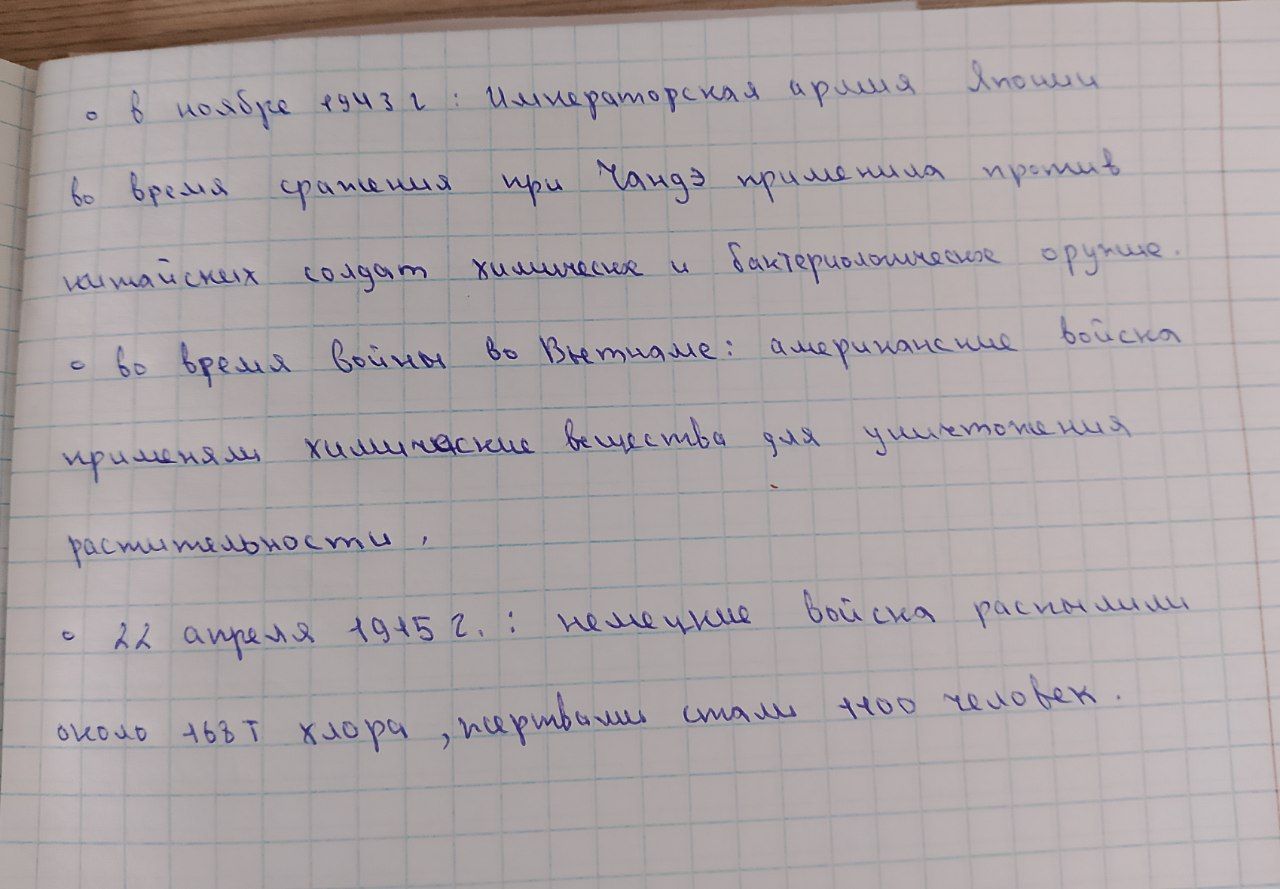 • в ноябре 1943 г : Императорская армия Японии
во время сражения при Чандэ применила против
китайских солдат химическое и бактериологическое оружие.
• во время войны во Вьетнаме: американские войска
применяли химические вещества для уничтожения
растительности.
• 22 апреля 1915 г. : немецкие войска распылили
около 168 т хлора, жертвами стали 1100 человек.